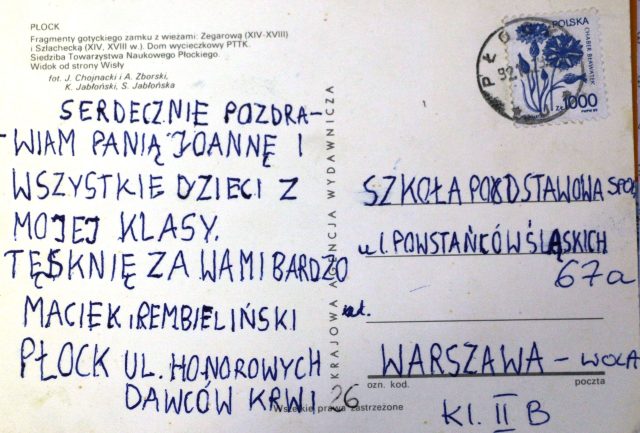 PŁOCK
Fragmenty gotyckiego zamku z wieżami: Zegarową (XIV-XVIII)
i Szlachecką (XIV, XVIII w.). Dom wycieczkowy PTTK.
Siedziba Towarzystwa Naukowego Płockiego.
Widok od strony Wisły
fot. J. Chojnacki i A. Zborski,
K. Jabłoński, S. Jabłońska
SERDECZNIE POZDRA-
-WIAM PANIĄ JOANNĘ I
WSZYSTKIE DZIECI Z
MOJEJ KLASY.
TĘSKNIĘ ZA WAMI BARDZO
MACIEK REMBIELIŃSKI
PŁOCK UL. HONOROWYCH
DAWCÓW KRWI 26
Wszelkie prawa zastrzeżone
KRAJOWA AGENCJA WYDAWNICZA
PŁO
92
POLSKA
CHABER BŁAWATEK
ZŁ 1000
SZKOŁA PODSTAWOWA SPOŁ
ul. POWSTAŃCÓW ŚLĄSKICH
67a
WARSZAWA - WOLA
ozn. kod. poczta
Kl. II B